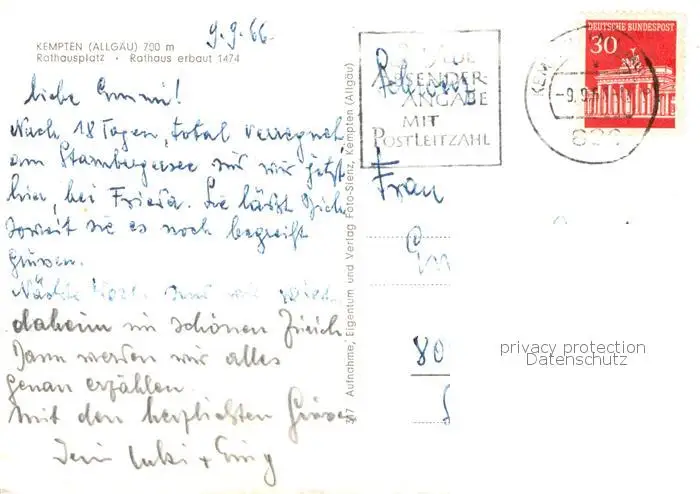 9.9.66.
KEMPTEN (ALLGÄU) 700 m
Rathausplatz · Rathaus erbaut 1474
liebe Emmi!
Nach 18 Tagen, total verregnet
am Starnbergersee sind wir jetzt
hier, bei Frieda. Sie lässt Dich
soweit sie es noch begreift
grüssen.
Nächste Woche sind wir wieder
daheim im schönen Zürich
Dann werden wir alles
genau erzählen.
Mit den herzlichsten Grüssen
347 Aufnahme, Eigentum und Verlag Foto-Sienz, Kempten (Allgäu)
ABSENDER-
ANGABE
MIT
POSTLEITZAHL
DEUTSCHE BUNDESPOST
30
KEM
-9.9.6
Frau
80
privacy protection
Datenschutz